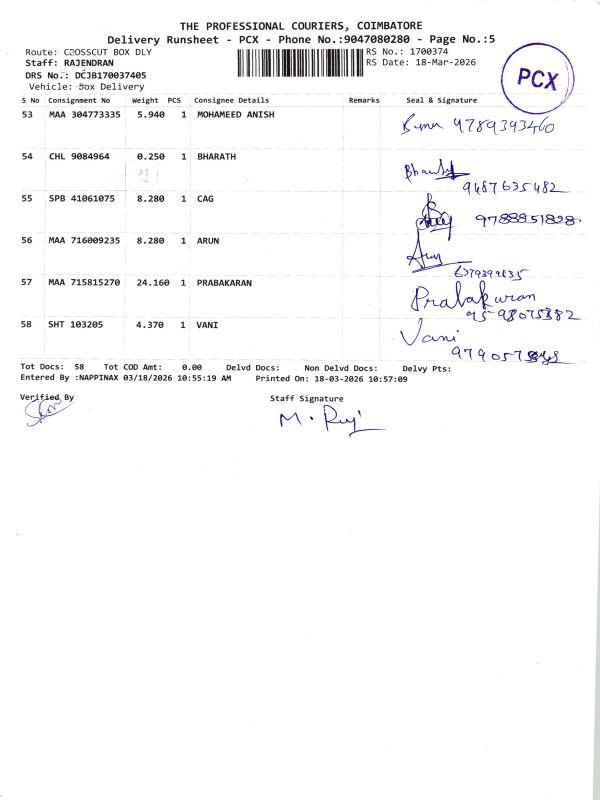 THE PROFESSIONAL COURIERS, COIMBATORE
Delivery Runsheet - PCX - Phone No.:9047080280 - Page No.:5
Route: CROSSCUT BOX DLY RS No.: 1700374
Staff: RAJENDRAN RS Date: 18-Mar-2026
DRS No.: DCJB170037405
Vehicle: Box Delivery
PCX
S No Consignment No Weight PCS Consignee Details Remarks Seal & Signature
53 MAA 304773335 5.940 1 MOHAMEED ANISH 9789393460
54 CHL 9084964 0.250 1 BHARATH
9487635482
55 SPB 41061075 8.280 1 CAG 9788851828
56 MAA 716009235 8.280 1 ARUN Arun
57 MAA 715815270 24.160 1 PRABAKARAN Prabakaran
58 SHT 103205 4.370 1 VANI Vani
Tot Docs: 58 Tot COD Amt: 0.00 Delvd Docs: Non Delvd Docs: Delvy Pts:
Entered By :NAPPINAX 03/18/2026 10:55:19 AM Printed On: 18-03-2026 10:57:09
Verified By Staff Signature